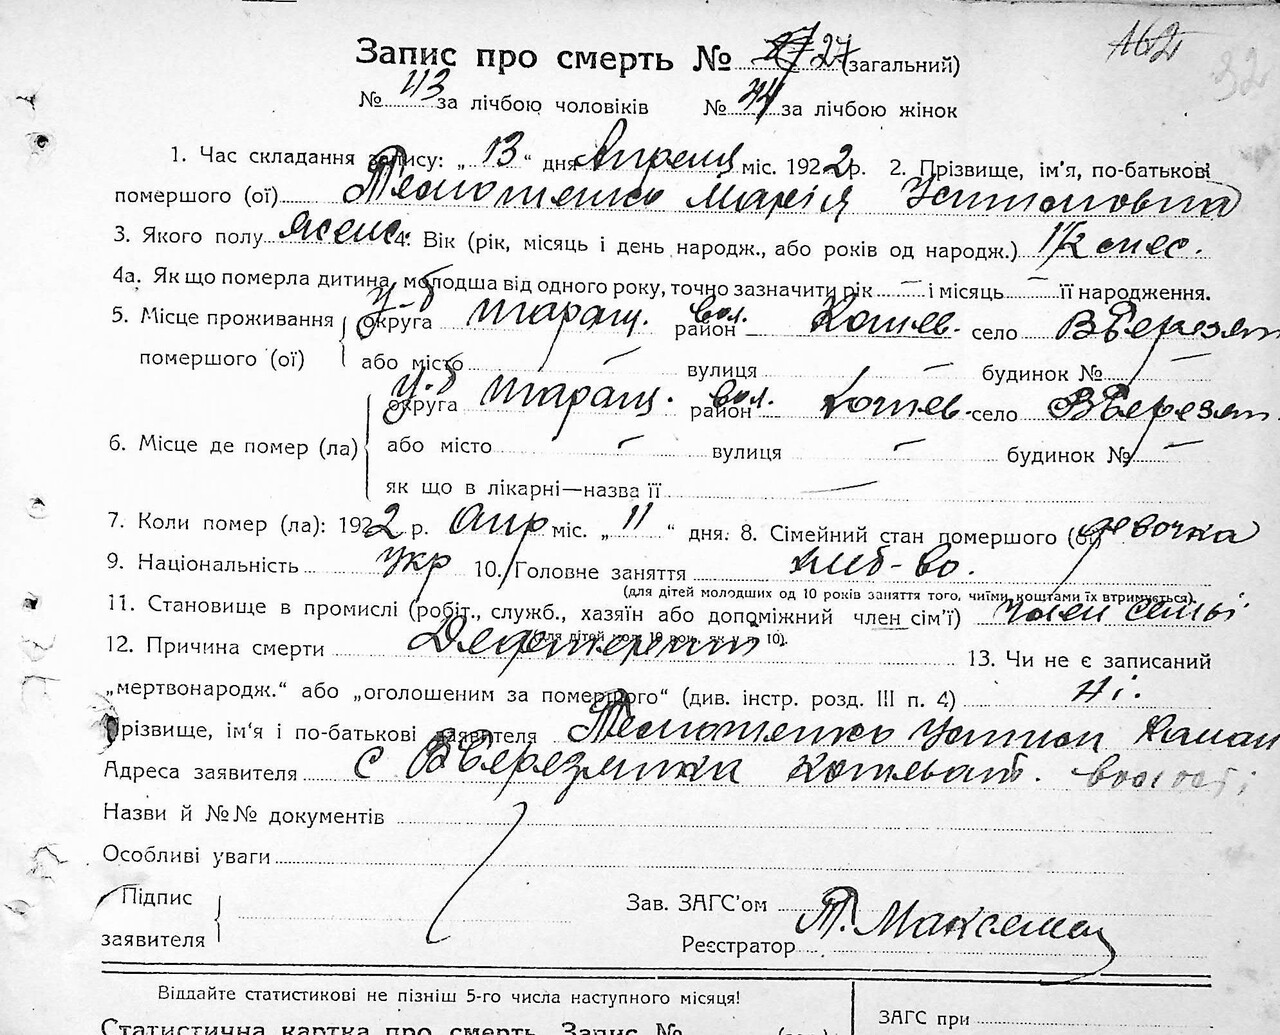 162
32
Запис про смерть № 27 27 (загальний)
№ 43 за лічбою чоловіків № 44 за лічбою жінок
1. Час складання запису: „ 13 “ дня Апреля міс. 1922 р. 2. Прізвище, ім'я, по-батькові
помершого (ої) Марія Устимовна
3. Якого полу женс. 4. Вік (рік, місяць і день народж., або років од народж.) 1½ мес.
4а. Як що померла дитина, молодша від одного року, точно зазначити рік — і місяць — її народження.
5. Місце проживання помершого (ої) у-д округа Таращ. вол. район Кошев. село ВБерезян
або місто — вулиця — будинок № —
6. Місце де помер (ла) у-д округа Таращ. вол. район Кошев. село ВБерезян.
або місто — вулиця — будинок № —
як що в лікарні—назва її —
7. Коли помер (ла): 1922 р. Апр міс. „ 11 “ дня. 8. Сімейний стан помершого (ої) девочка
9. Національність укр 10. Головне заняття хліб-во.
(для дітей молодших од 10 років заняття того, чиїми коштами їх втримується).
11. Становище в промислі (робіт., служб., хазяїн або допоміжний член сім'ї) член семьі
(для дітей мол. 10 рок. як у п. 10).
12. Причина смерти 13. Чи не є записаний
„мертвонародж.“ або „оголошеним за помершого“ (див. інстр. розд. III п. 4) Ні.
Прізвище, ім'я і по-батькові заявителя Устим
Адреса заявителя с ВБерезянка волості
Назви й №№ документів
Особливі уваги
Підпис заявителя
Зав. ЗАГС'ом
Реєстратор
Віддайте статистикові не пізніш 5-го числа наступного місяця!
Статистична картка про смерть. Запис №
ЗАГС при